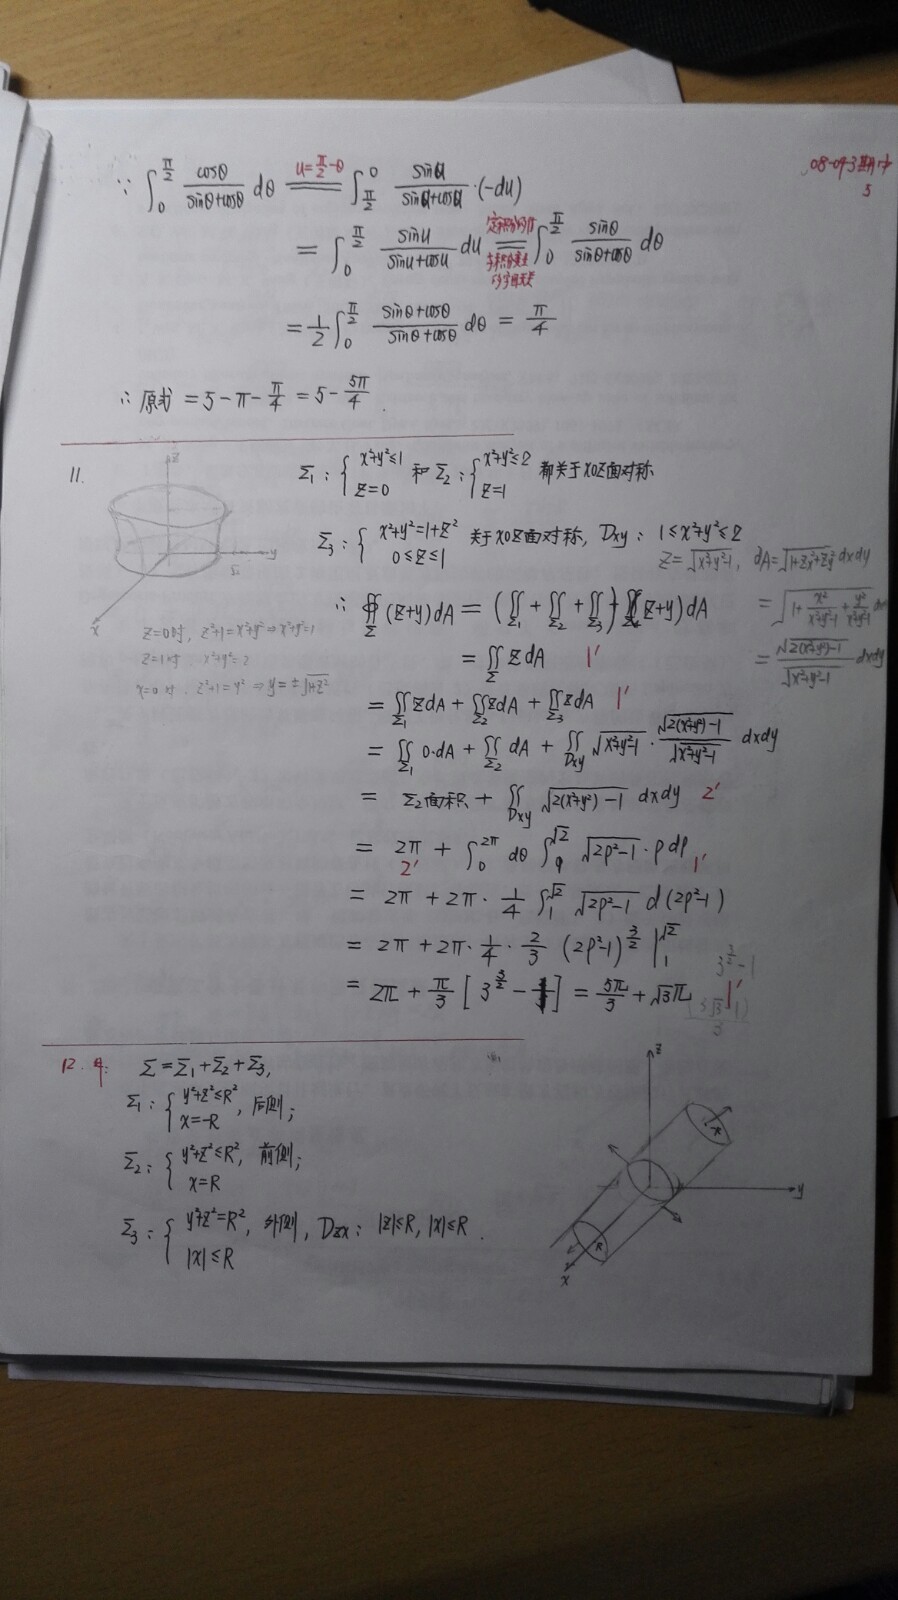 08-09-3期中
5
∵ ∫₀^(π/2) cosθ/(sinθ+cosθ) dθ = (u=π/2-θ) ∫_(π/2)^0 sinu/(sinu+cosu)·(-du)
= ∫₀^(π/2) sinu/(sinu+cosu) du = ∫₀^(π/2) sinθ/(sinθ+cosθ) dθ
= 1/2 ∫₀^(π/2) (sinθ+cosθ)/(sinθ+cosθ) dθ = π/4
∴ 原式 = 5-π-π/4 = 5-5π/4.
11.
z
y
x
Ω
z=0时, z²+1=x²+y² ⇒ x²+y²=1
z=1时 x²+y²=2
x=0时. z²+1=y² ⇒ y=±√(1+z²)
Σ₁: { x²+y²≤1 z=0 和 Σ₂: { x²+y²≤2 z=1 都关于xoz面对称
Σ₃: { x²+y²=1+z² 0≤z≤1 关于xoz面对称, Dxy: 1≤x²+y²≤2
z=√(x²+y²-1), dA=√(1+zx²+zy²) dxdy
=√(1+x²/(x²+y²-1)+y²/(x²+y²-1)) dxdy
=√(2(x²+y²)-1)/√(x²+y²-1) dxdy
∴ ∯_Σ (z+y)dA = (∬_Σ₁ + ∬_Σ₂ + ∬_Σ₃)(z+y)dA
= ∬_Σ z dA 1'
= ∬_Σ₁ zdA + ∬_Σ₂ zdA + ∬_Σ₃ zdA 1'
= ∬_Σ₁ 0·dA + ∬_Σ₂ dA + ∬_Dxy √(x²+y²-1) · √(2(x²+y²)-1)/√(x²+y²-1) dxdy
= Σ₂面积 + ∬_Dxy √(2(x²+y²)-1) dxdy 2'
= 2π + ∫₀^(2π) dθ ∫₁^√2 √(2ρ²-1)·ρdρ 1'
2'
= 2π + 2π·1/4 ∫₁^√2 √(2ρ²-1) d(2ρ²-1)
= 2π + 2π·1/4·2/3 (2ρ²-1)^(3/2) |₁^√2
3^(3/2)-1
= 2π + π/3 [3^(3/2) - 1] = 5π/3 + √3π 1'
12.
Σ=Σ₁+Σ₂+Σ₃,
Σ₁: { y²+z²≤R² x=-R , 后侧;
Σ₂: { y²+z²≤R², x=R 前侧;
Σ₃: { y²+z²=R², |x|≤R 外侧, Dzx: |z|≤R, |x|≤R.
z
y
R
x